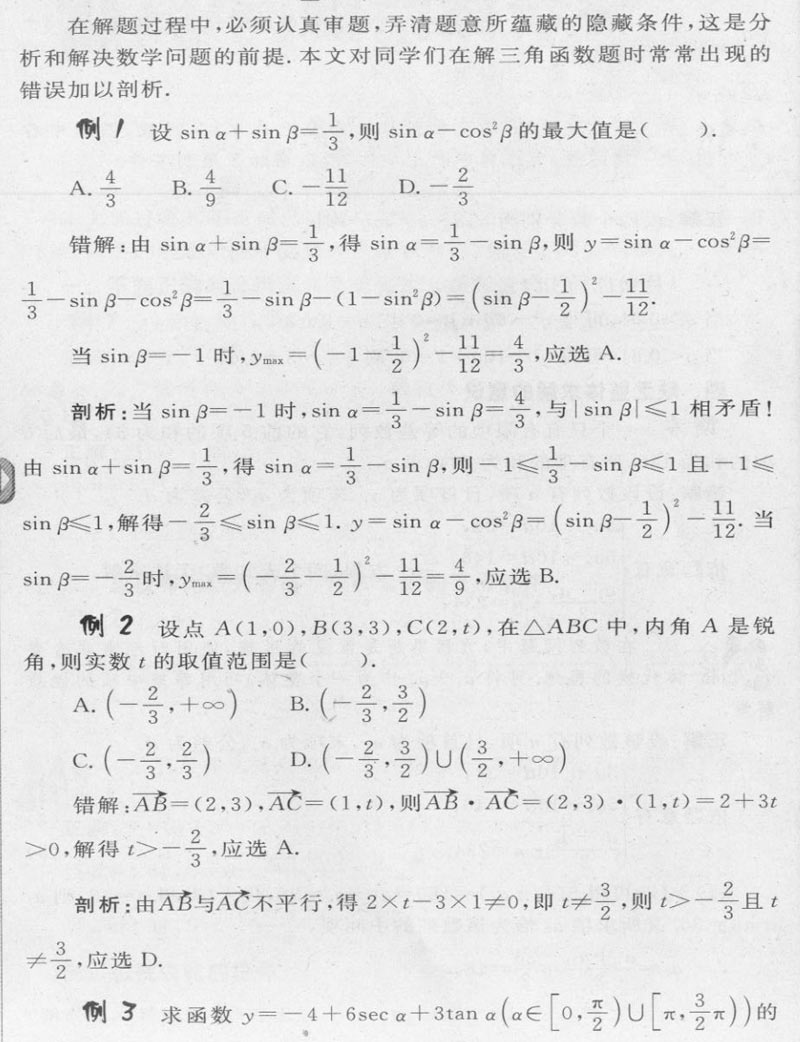 在解题过程中,必须认真审题,弄清题意所蕴藏的隐藏条件,这是分
析和解决数学问题的前提.本文对同学们在解三角函数题时常常出现的
错误加以剖析.
例1 设 sin α+sin β=1/3,则 sin α-cos²β 的最大值是(　　).
A. 4/3　B. 4/9　C. -11/12　D. -2/3
错解:由 sin α+sin β=1/3,得 sin α=1/3-sin β,则 y=sin α-cos²β=
1/3-sin β-cos²β=1/3-sin β-(1-sin²β)=(sin β-1/2)²-11/12.
当 sin β=-1 时,ymax=(-1-1/2)²-11/12=4/3,应选 A.
剖析:当 sin β=-1 时,sin α=1/3-sin β=4/3,与|sin β|≤1 相矛盾!
由 sin α+sin β=1/3,得 sin α=1/3-sin β,则-1≤1/3-sin β≤1 且-1≤
sin β≤1,解得-2/3≤sin β≤1. y=sin α-cos²β=(sin β-1/2)²-11/12. 当
sin β=-2/3时,ymax=(-2/3-1/2)²-11/12=4/9,应选 B.
例2 设点 A(1,0),B(3,3),C(2,t),在△ABC 中,内角 A 是锐
角,则实数 t 的取值范围是(　　).
A. (-2/3,+∞)　B. (-2/3,3/2)
C. (-2/3,2/3)　D. (-2/3,3/2)∪(3/2,+∞)
错解:AB→=(2,3),AC→=(1,t),则AB→·AC→=(2,3)·(1,t)=2+3t
>0,解得 t>-2/3,应选 A.
剖析:由AB→与AC→不平行,得 2×t-3×1≠0,即 t≠3/2,则 t>-2/3且 t
≠3/2,应选 D.
例3 求函数 y=-4+6sec α+3tan α(α∈[0,π/2)∪[π,3/2π))的